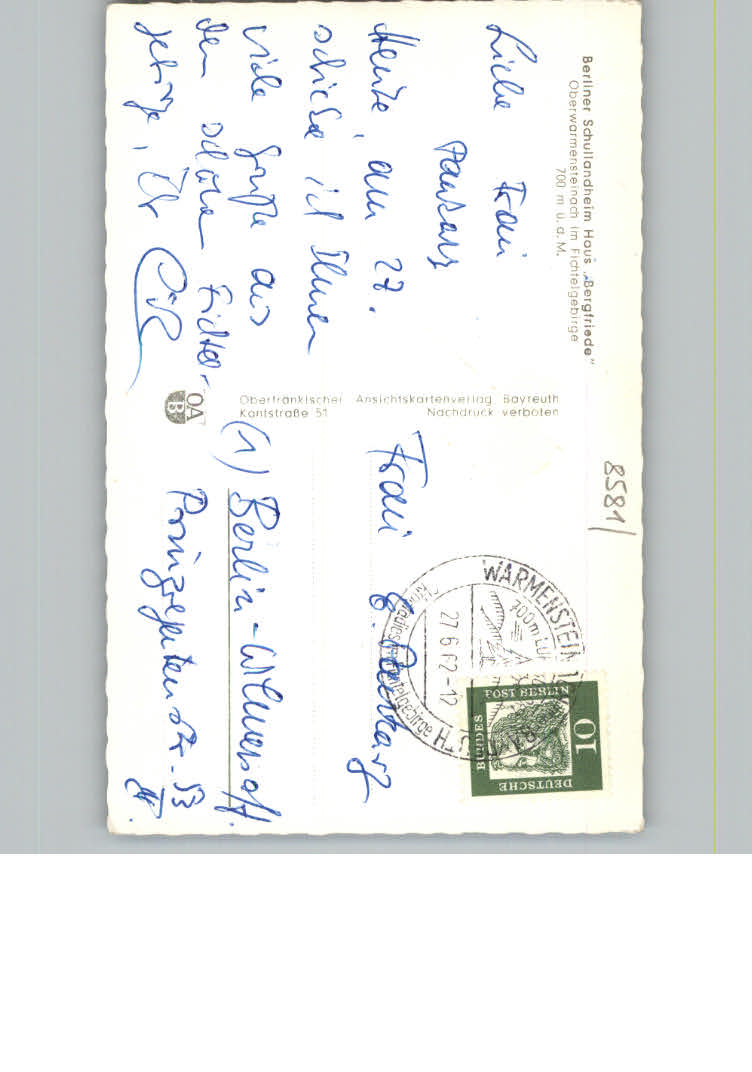 Berliner Schullandheim Haus „Bergfriede"
Oberwarmensteinach im Fichtelgebirge
700 m ü. d. M.
Liebe Frau
Pankarz
Heute, am 27.
schicke ich Ihnen
viele Grüße aus
dem schönen Fichtel-
gebirge, Ihr
OA
B
Oberfränkischer Ansichtskartenverlag Bayreuth
Kantstraße 51 Nachdruck verboten
8581/
WARMENSTEINACH
700m
27.6.62-12
Fichtelgebirge
DEUTSCHE
BUNDES
POST BERLIN
10
Frau E. Pankarz
(1) Berlin-Wilmersdf.
Prinzregentenstr. 53
IV.